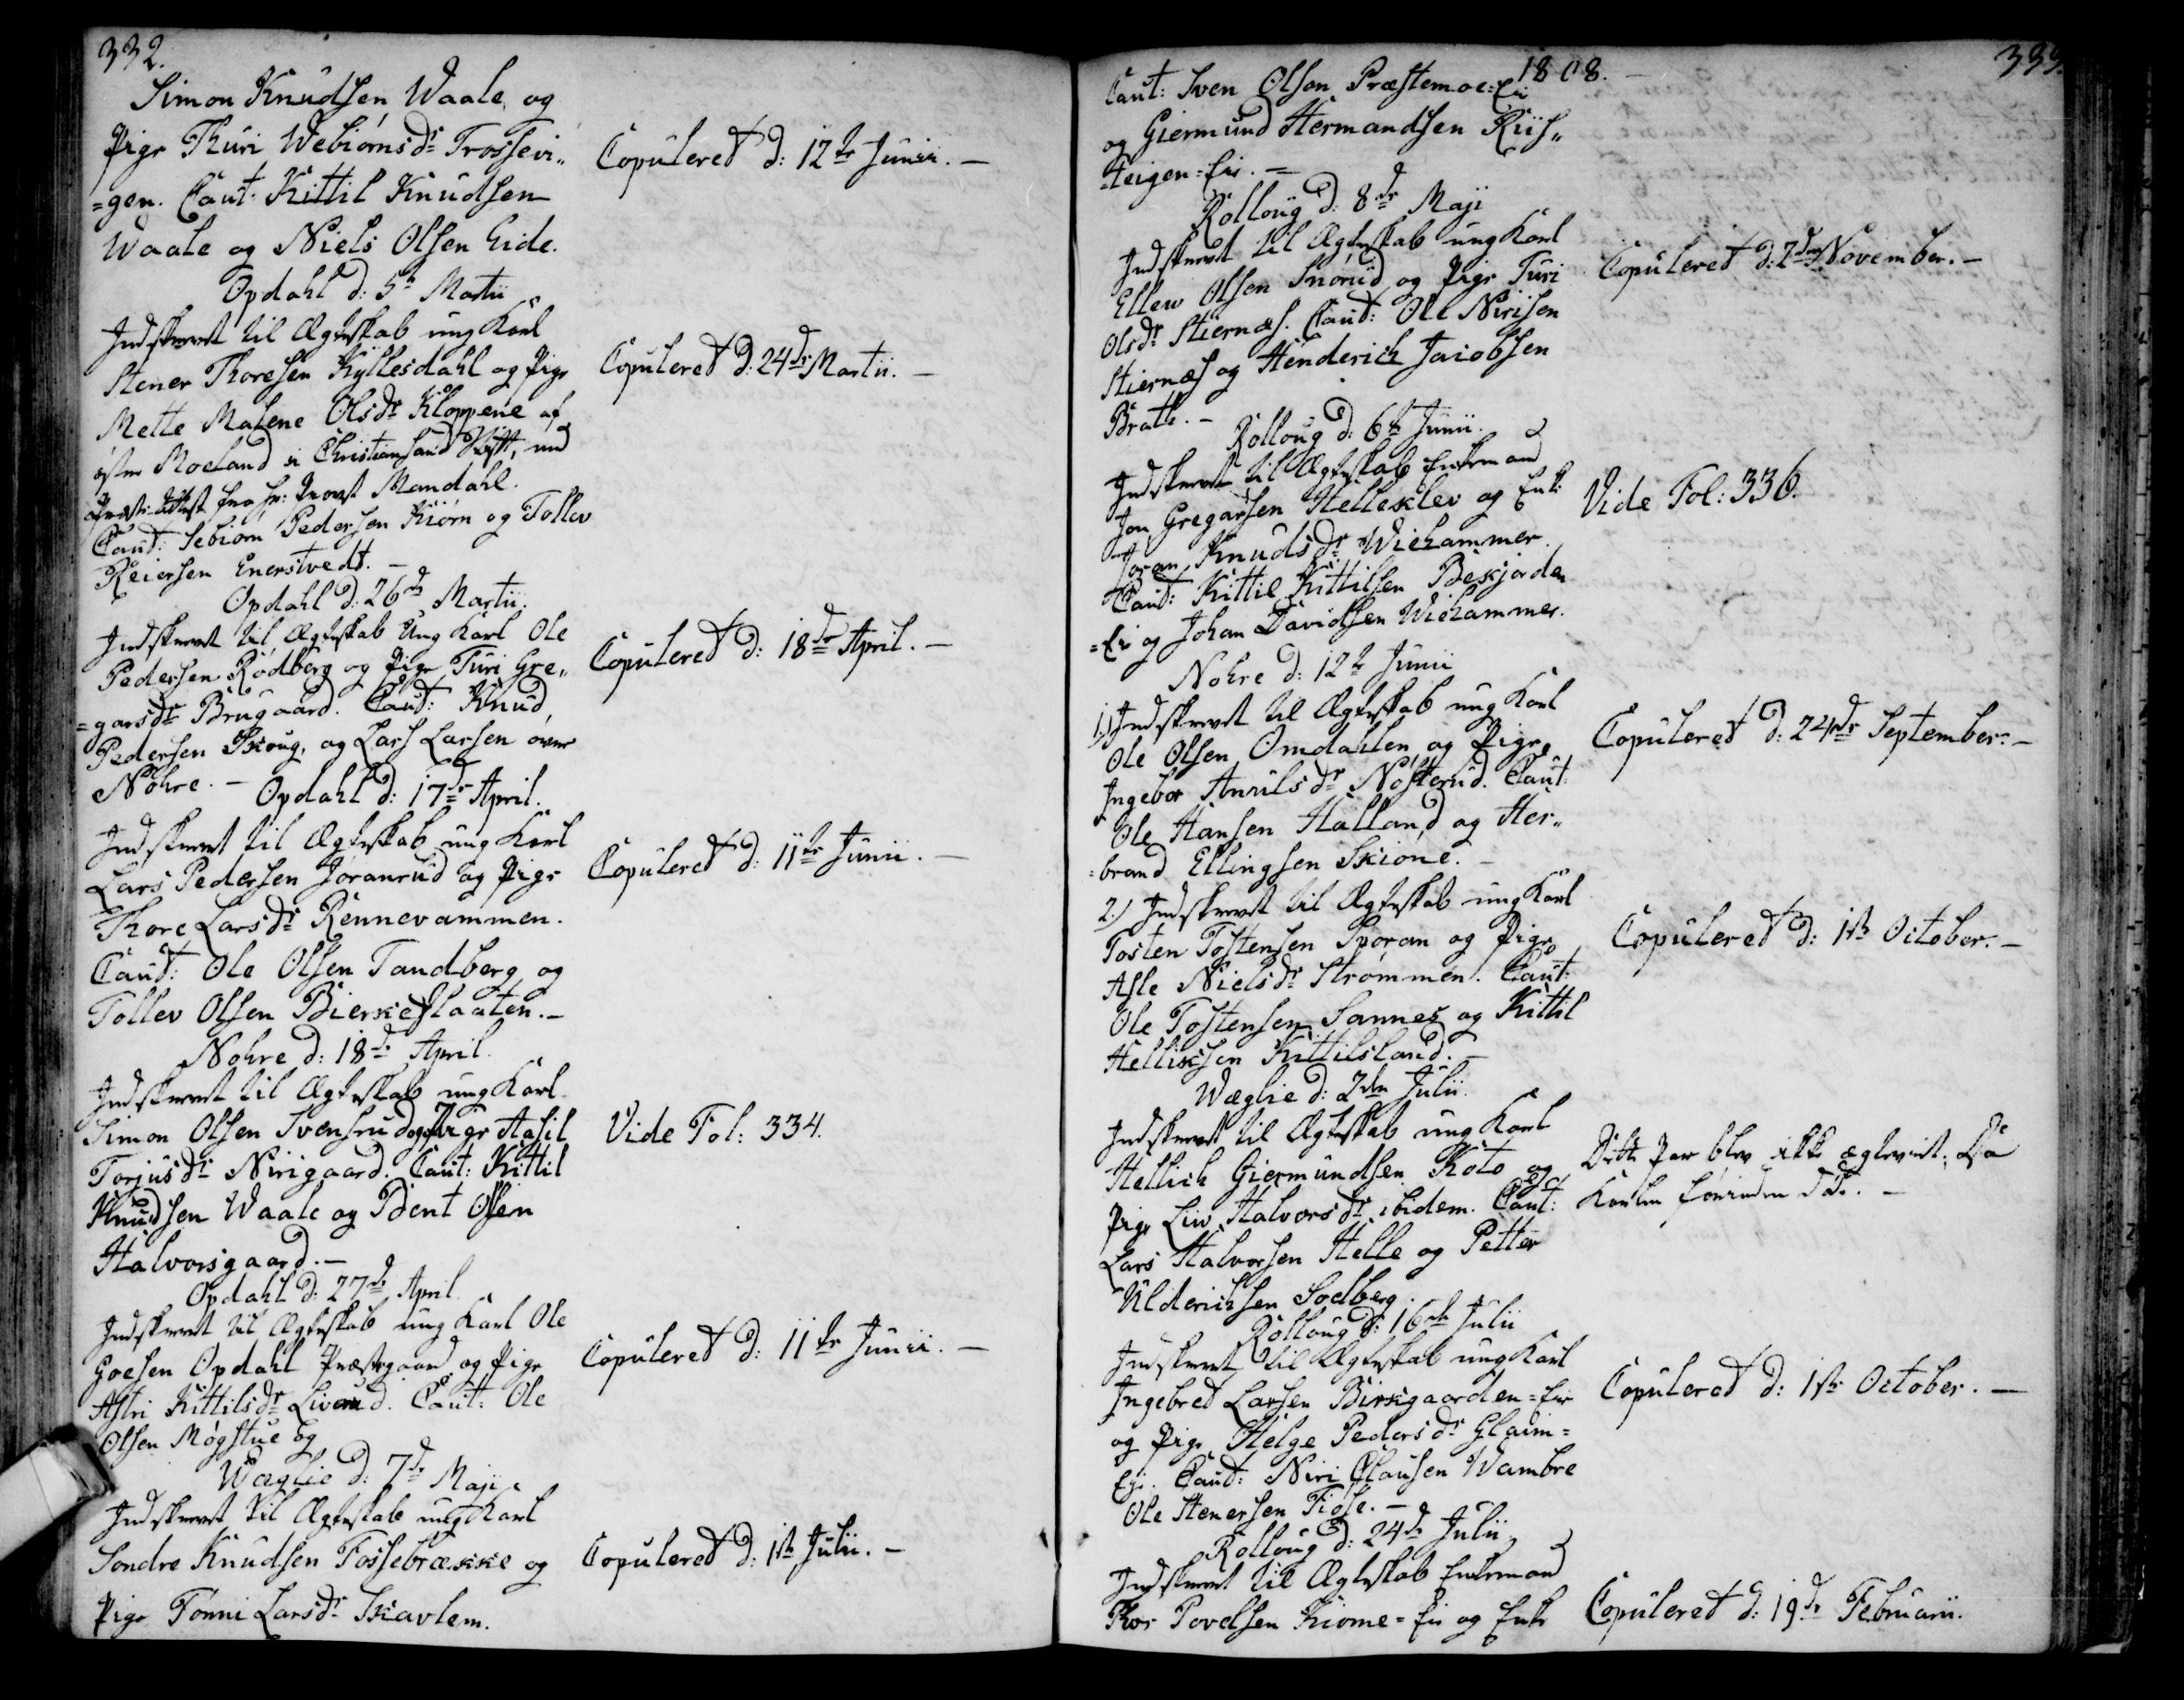 332.
Simon Knudsen Waale og
Pige Thuri Webiørnsdr Trossevi„
=gen. Caut: Kittil Knudsen
Waale og Niels Olsen Eide.
Copuleret d: 12te Junii. —
Opdahl d: 5te Martii
Indskrevet til Ægteskab ung Karl
Stener Thoresen Kyllesdahl og Pige
Mette Malene Olsdr Kloppene af
øster Moeland i Christiansand Stift, med
Attest fra Hr: Provst Mandahl.
Caut: Sebiørn Pedersen Kiørn og Tollev
Reiersen Enerstvedt. —
Copuleret d: 24de Martii. —
Opdahl d: 26de Martii.
Indskrevet til Ægteskab Ung Karl Ole
Pedersen Rødberg og Pige Turi Gre„
=garsdr Brugaard. Caut: Knud
Pedersen Skoug, og Lars Larsen over
Nohre. —
Copuleret d: 18de April. —
Opdahl d: 17de April.
Indskrevet til Ægteskab ung Karl
Lars Pedersen Jøranrud og Pige
Thore Larsdr Rennevammen.
Caut: Ole Olsen Tandberg og
Tollev Olsen Bierkeflaaten. —
Copuleret d: 11te Junii. —
Nohre d: 18de April.
Indskrevet til Ægteskab ung Karl
Simon Olsen Svensrud og Pige Aasil
Torjusdr Nirigaard. Caut: Kittil
Knudsen Waale og Bent Olsen
Halvorsgaard. —
Vide Fol: 334.
Opdahl d: 27de April
Indskrevet til Ægteskab ung Karl Ole
Goesen Opdahl Præstegaard og Pige
Astri Kittilsdr Liverud. Caut: Ole
Olsen Møgstue og
Copuleret d: 11te Junii. —
Wæglie d: 7de Maji
Indskrevet til Ægteskab ung Karl
Søndre Knudsen Fossebrække og
Pige Tønni Larsdr Skavlem.
Copuleret d: 1ste Julii. —
1808. —
333.
Caut: Sven Olson Præstemoe=Ei
og Giermund Hermandsen Riis„
=teigen=Eie. —
Rolloug d: 8de Maji
Indskrevet til Ægteskab ung Karl
Ellew Olsen Snørud og Pige Turi
Olsdr Stiernæs. Caut: Ole Nirisen
Stiernæs og Henderich Jacobsen
Bratt. —
Copuleret d: 2den November. —
Rolloug d: 6te Junii.
Indskrevet til Ægteskab Enkemand
Jon Gregarsen Helleklev og Enke
Joran Knudsdr Wiehammer.
Caut: Kittil Kittilsen Beskjorden
=Ei og Johan Davidsen Wiehammer.
Vide Fol: 336.
Nohre d: 12te Junii
1.) Indskrevet til Ægteskab ung Karl
Ole Olsen Omdahlen og Pige
Ingebor Anulsdr Nosterud. Caut:
Ole Hansen Halland og Her„
=brand Ellingsen Skiøne. —
Copuleret d: 24de September. —
2.) Indskrevet til Ægteskab ung Karl
Tosten Tostensen Sporan og Pige
Asle Nielsdr Strømmen. Caut:
Ole Tostensen Sannes og Kittil
Helliksen Kittilsland. —
Copuleret d: 1ste October. —
Wæglie d: 2den Julii.
Indskrevet til Ægteskab ung Karl
Hellich Giermundsen Koto og
Pige Liv Halvorsdr ibidem. Caut:
Lars Halvorsen Helle og Petter
Ulderichsen Soelberg.
Dette Par blev ikke ægteviet, Da
Karlen forinden døde. —
Rolloug d: 16de Julii
Indskrevet til Ægteskab ung Karl
Ingebred Larsen Birkgaarden=Eie
og Pige Helge Pedersdr Glaim=
Eje. Caut: Niri Clausen Wambre
Ole Stenersen Fiøse. —
Copuleret d: 1ste October. —
Rolloug d: 24de Julii
Indskrevet til Ægteskab Enkemand
Thor Povelsen Kiome=Eie og Enke
Copuleret d: 19de Februarii.